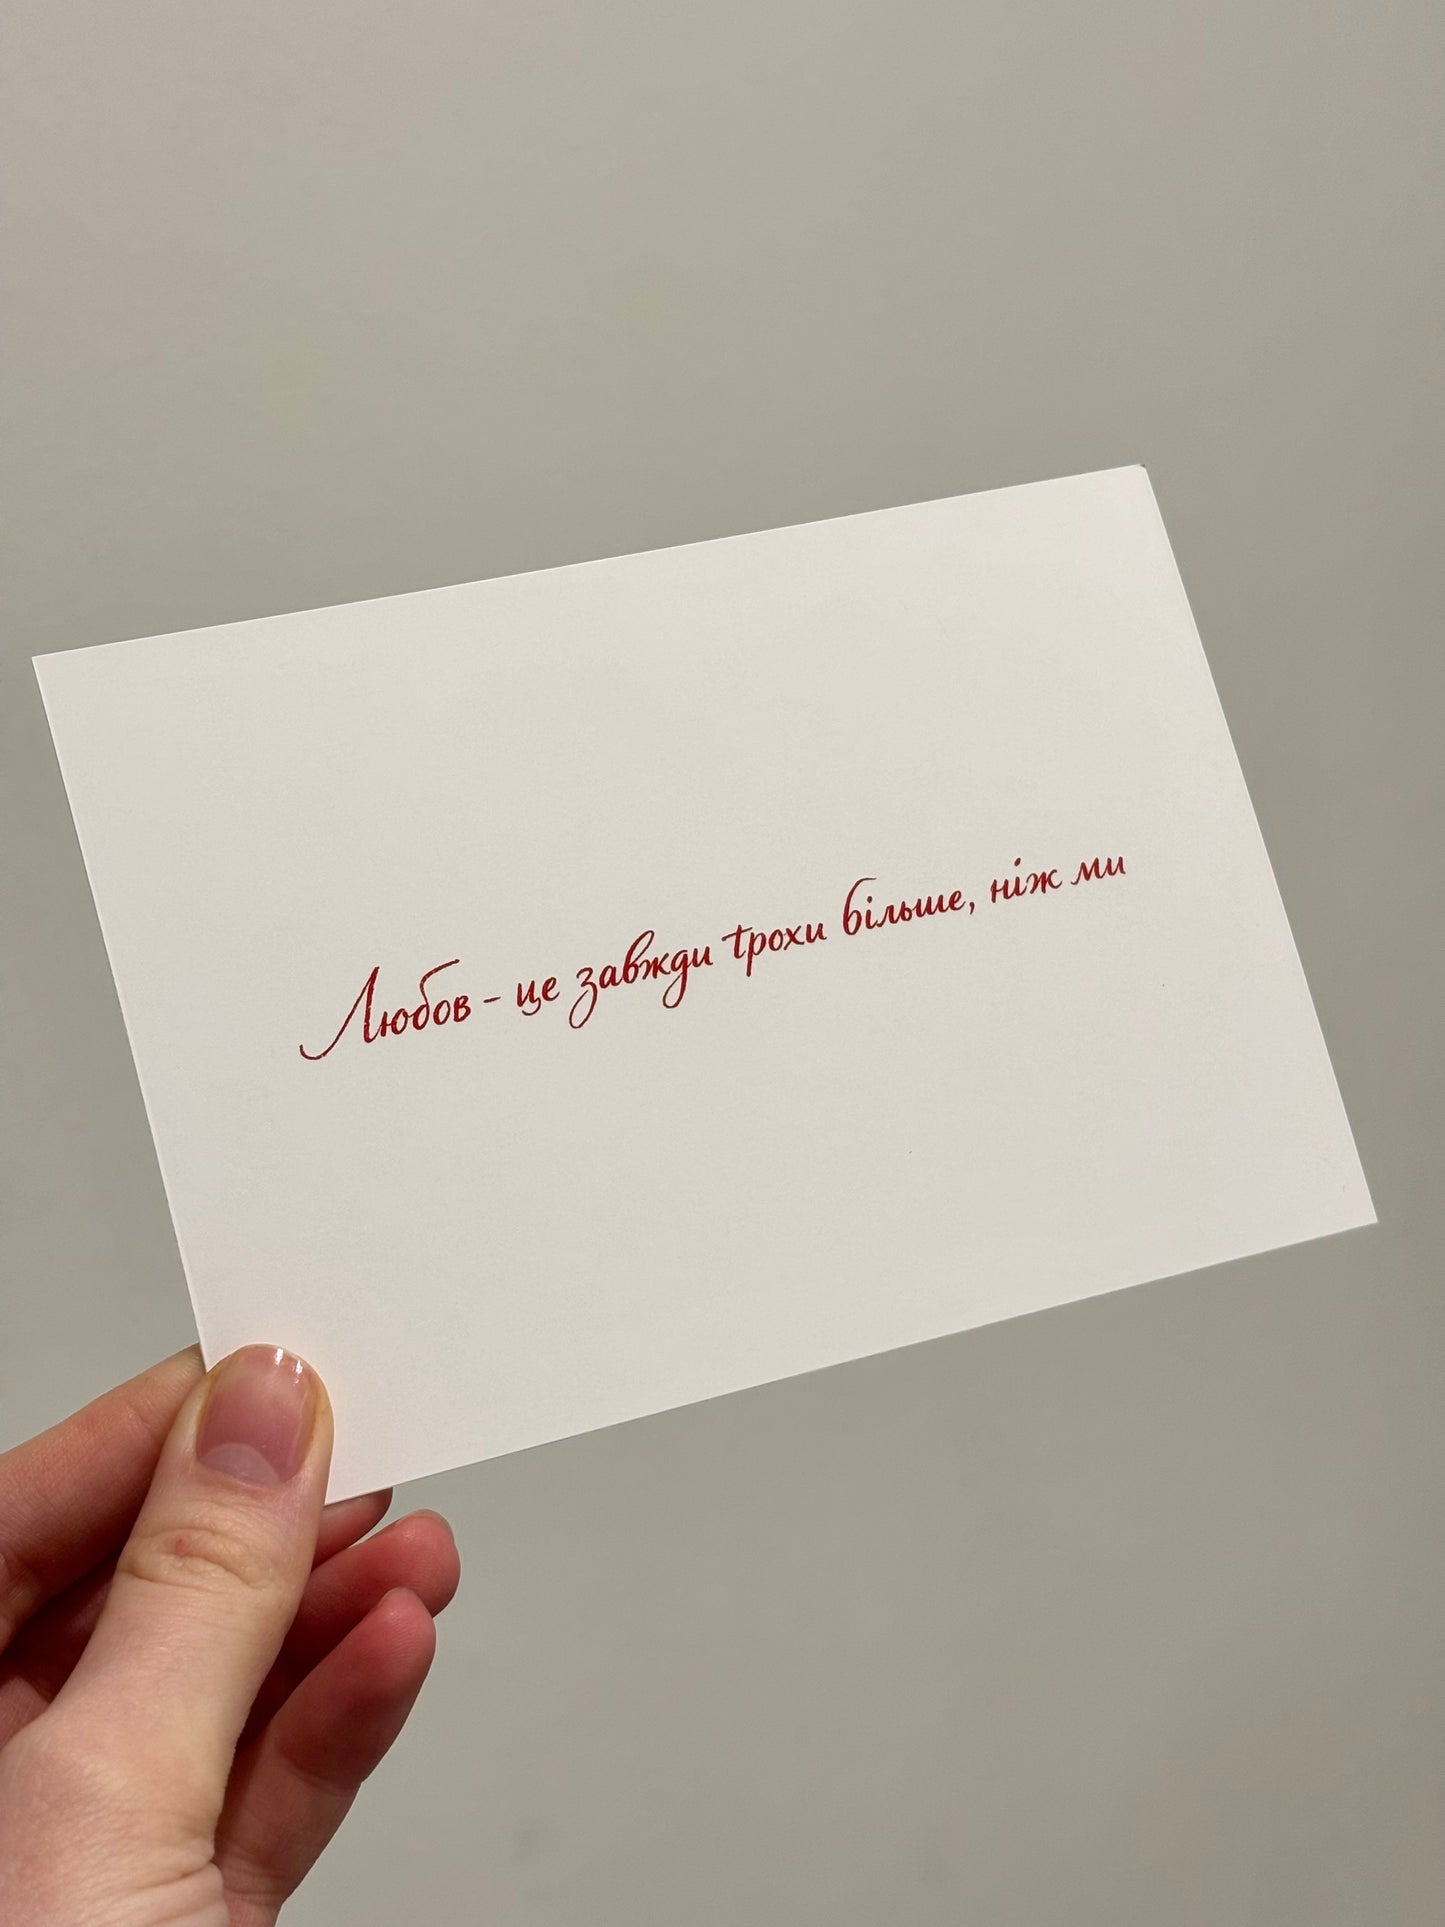 Любов - це завжди трохи більше, ніж ми